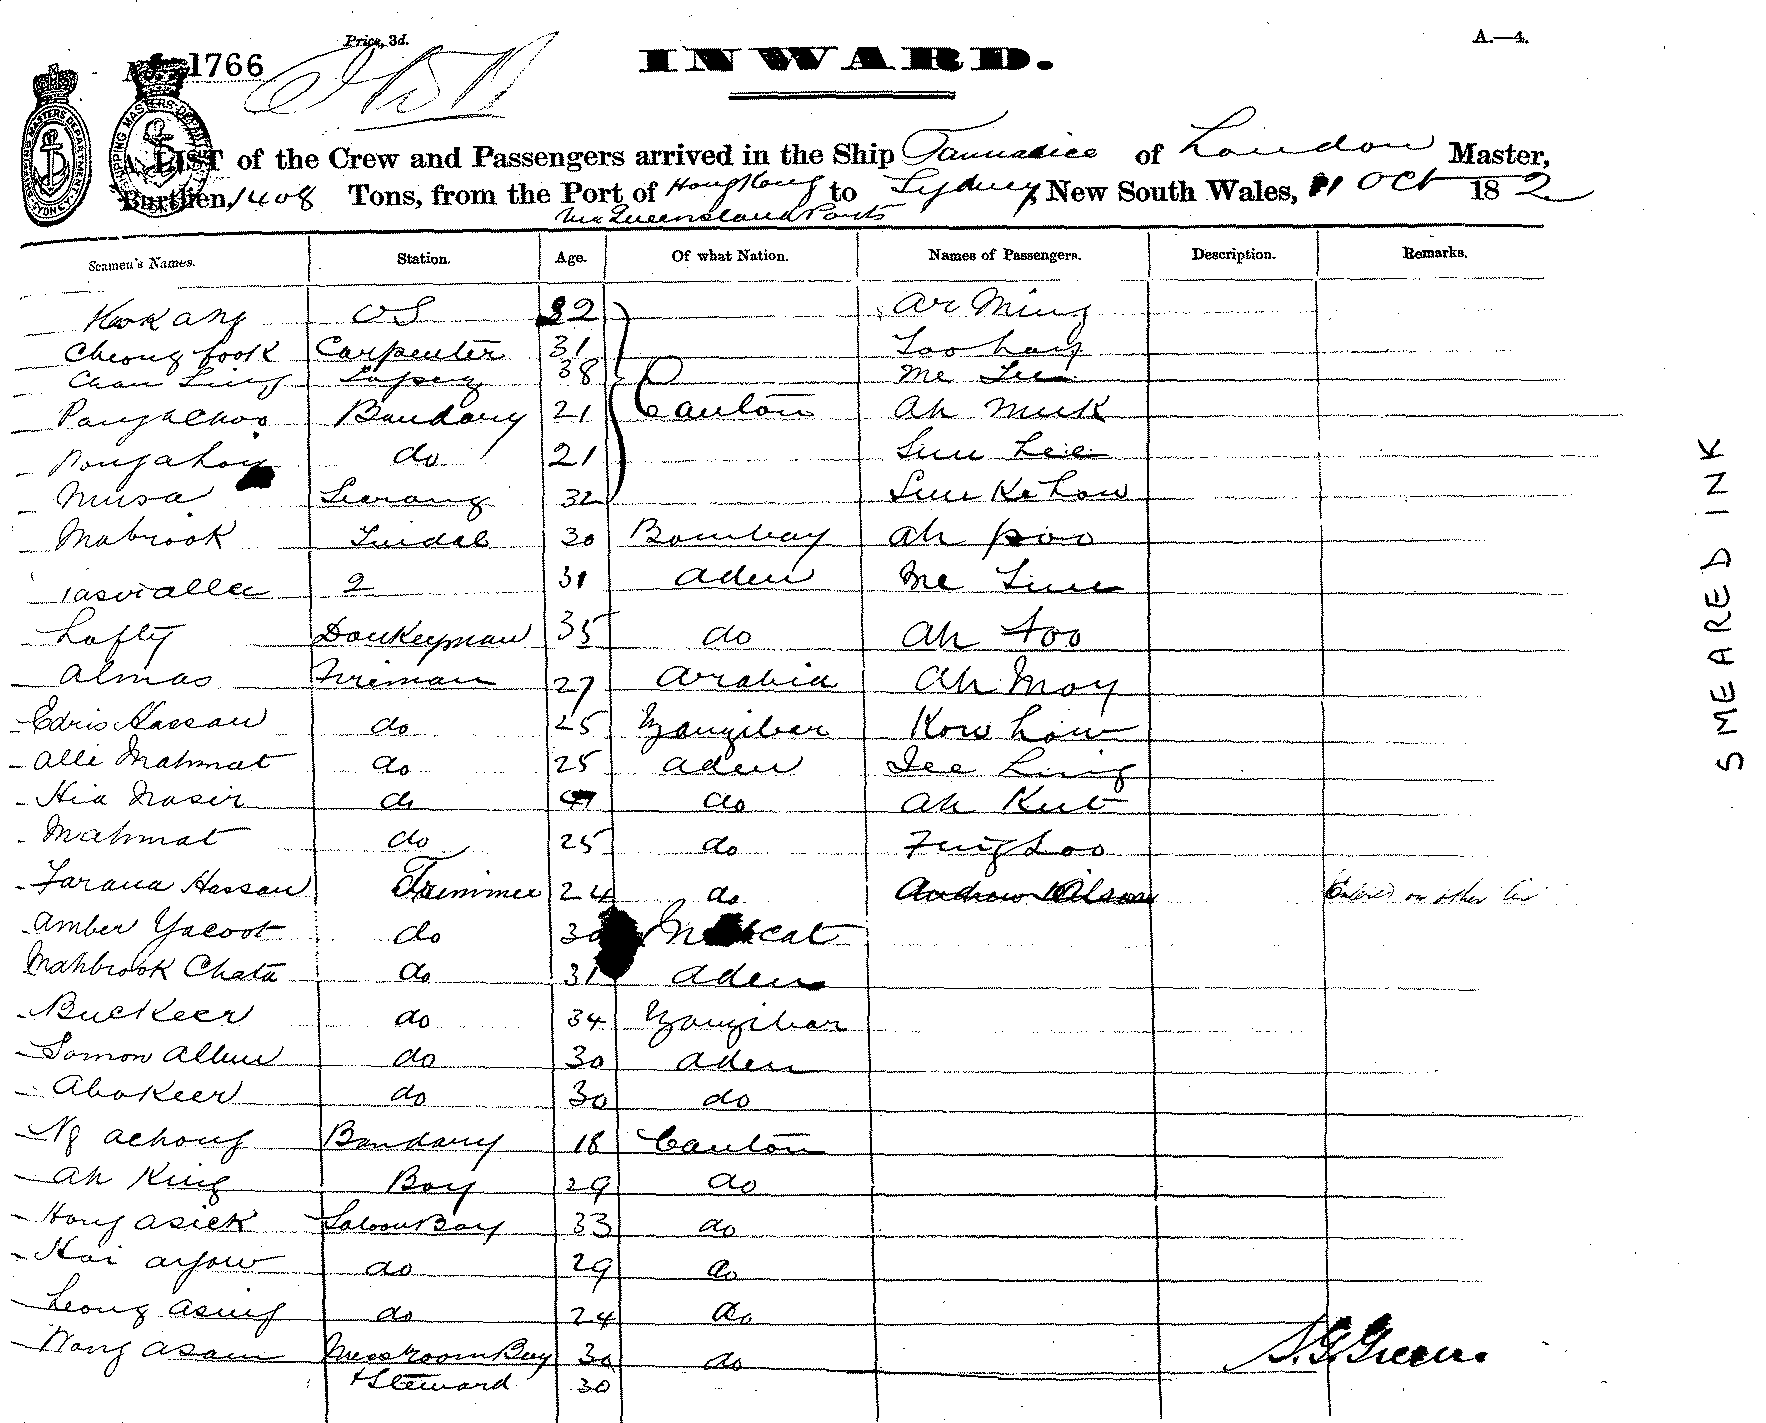 Price, 3d.
A.—4.
1766
INWARD.
A LIST of the Crew and Passengers arrived in the Ship Tannadice of London Master,
Burthen, 1408 Tons, from the Port of Hong Kong to Sydney, New South Wales, Oct 182
via Queensland Ports
Seamen's Names. Station. Age. Of what Nation. Names of Passengers. Description. Remarks.
Kwok ang OS 22 Ar Ming
Cheong fook Carpenter 31
Chan Ling 38 Me Lee
Bandary 21 Canton Ah Muk
do 21 Sun Lee
Musa Searang 32 Sun Ke How
Mabrook Tindal 30 Bombay Ah poo
2 31 Aden Me Sun
Lofty Donkeyman 35 do Ah Too
Almas Fireman 27 Arabia Ah Moy
Edris Hassan do 25 Zanzibar Kow How
Alli Mahmat do 25 Aden Lee Ling
Hia Nasir do do Ah Kut
Mahmat do 25 do Fung Loo
Farana Hassan Trimmer 24 do Andrew Wilson on other
Amber Yacoot do 30 Muscat
Mahbrook Chata do 31 Aden
Buckeer do 34 Zanzibar
Somon do 30 Aden
Abokeer do 30 do
Ng Achong Bandary 18 Canton
Ah King Boy 29 do
Hong Asick Saloon Boy 33 do
Hoi Ayow do 29 do
Leong Asing do 24 do
Wong Asam Messroom Boy 30 do
+ Steward 30
S. G. Green.
SMEARED INK